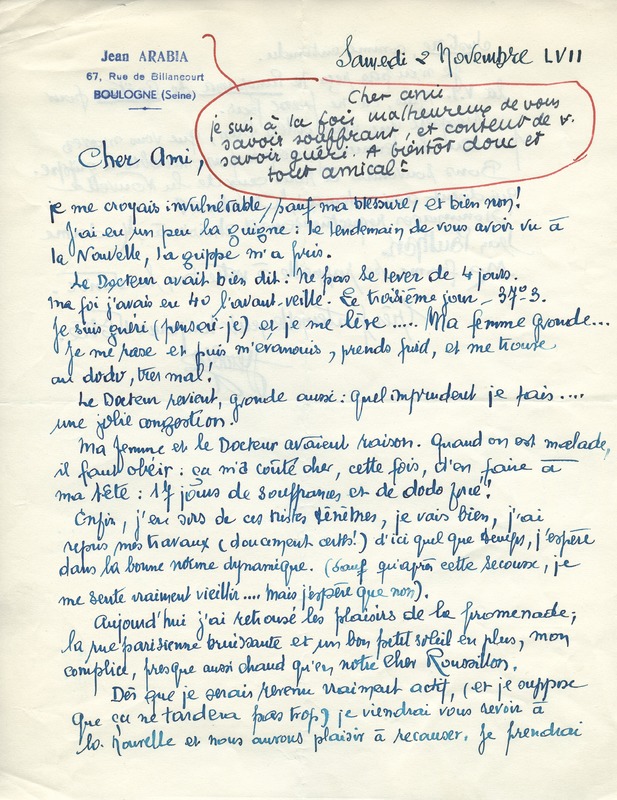 Jean ARABIA
67, Rue de Billancourt
BOULOGNE (Seine)
Samedi 2 Novembre LVII
Cher ami
je suis à la fois malheureux de vous
savoir souffrant, et content de v.
savoir guéri. A bientôt donc et
tout amical t
Cher Ami,
je me croyais invulnérable, sauf ma blessure, et bien non!
J'ai eu un peu la guigne : le lendemain de vous avoir vu à
la Nouvelle, la grippe m'a pris.
Le Docteur avait bien dit : ne pas se lever de 4 jours.
ma foi j'avais eu 40 l'avant-veille. Le troisième jour _ 37°3.
Je suis guéri (pensai-je) et je me lève ..... Ma femme gronde...
Je me rase et puis m'évanouis, prends froid, et me trouve
au dodo, très mal!
Le Docteur revient, gronde aussi : quel imprudent je fais ....
une jolie congestion.
Ma femme et le Docteur avaient raison. Quand on est malade,
il faut obéir : ça m'a coûté cher, cette fois, d'en faire à
ma tête : 17 jours de souffrances et de dodo forcé!
Enfin, j'en sors de ces tristes ténèbres, je vais bien, j'ai
repris mes travaux (doucement certes!) d'ici quel que temps, j'espère
dans la bonne norme dynamique. (sauf qu'après cette secousse, je
me sente vraiment vieillir.... mais j'espère que non).
Aujourd'hui j'ai retrouvé les plaisirs de la promenade;
la rue parisienne bruissante et un bon petit soleil en plus, mon
complice, presque aussi chaud qu'en notre cher Roussillon.
Dès que je serais revenu vraiment actif, (et je suppose
que ça ne tardera pas trop) je viendrai vous revoir à
la Nouvelle et nous aurons plaisir à recauser. Je prendrai